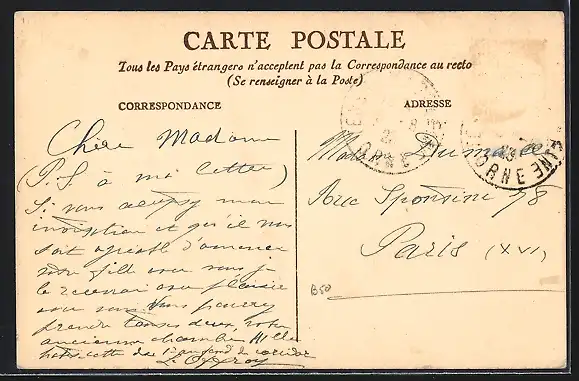 CARTE POSTALE
Tous les Pays étrangers n'acceptent pas la Correspondance au recto
(Se renseigner à la Poste)
CORRESPONDANCE
ADRESSE
Chère Madame
(P.S à ma lettre)
Si vous acceptez mon
invitation et qu'il vous
soit agréable d'amener
votre fille avec vous je
la recevrai avec plaisir
avec vous Vous pourrez
prendre toutes deux, votre
ancienne chambre
du 1er au fond du corridor
Madame
Rue Spontini 78
Paris (XVI)
B50
ORNE
ORNE